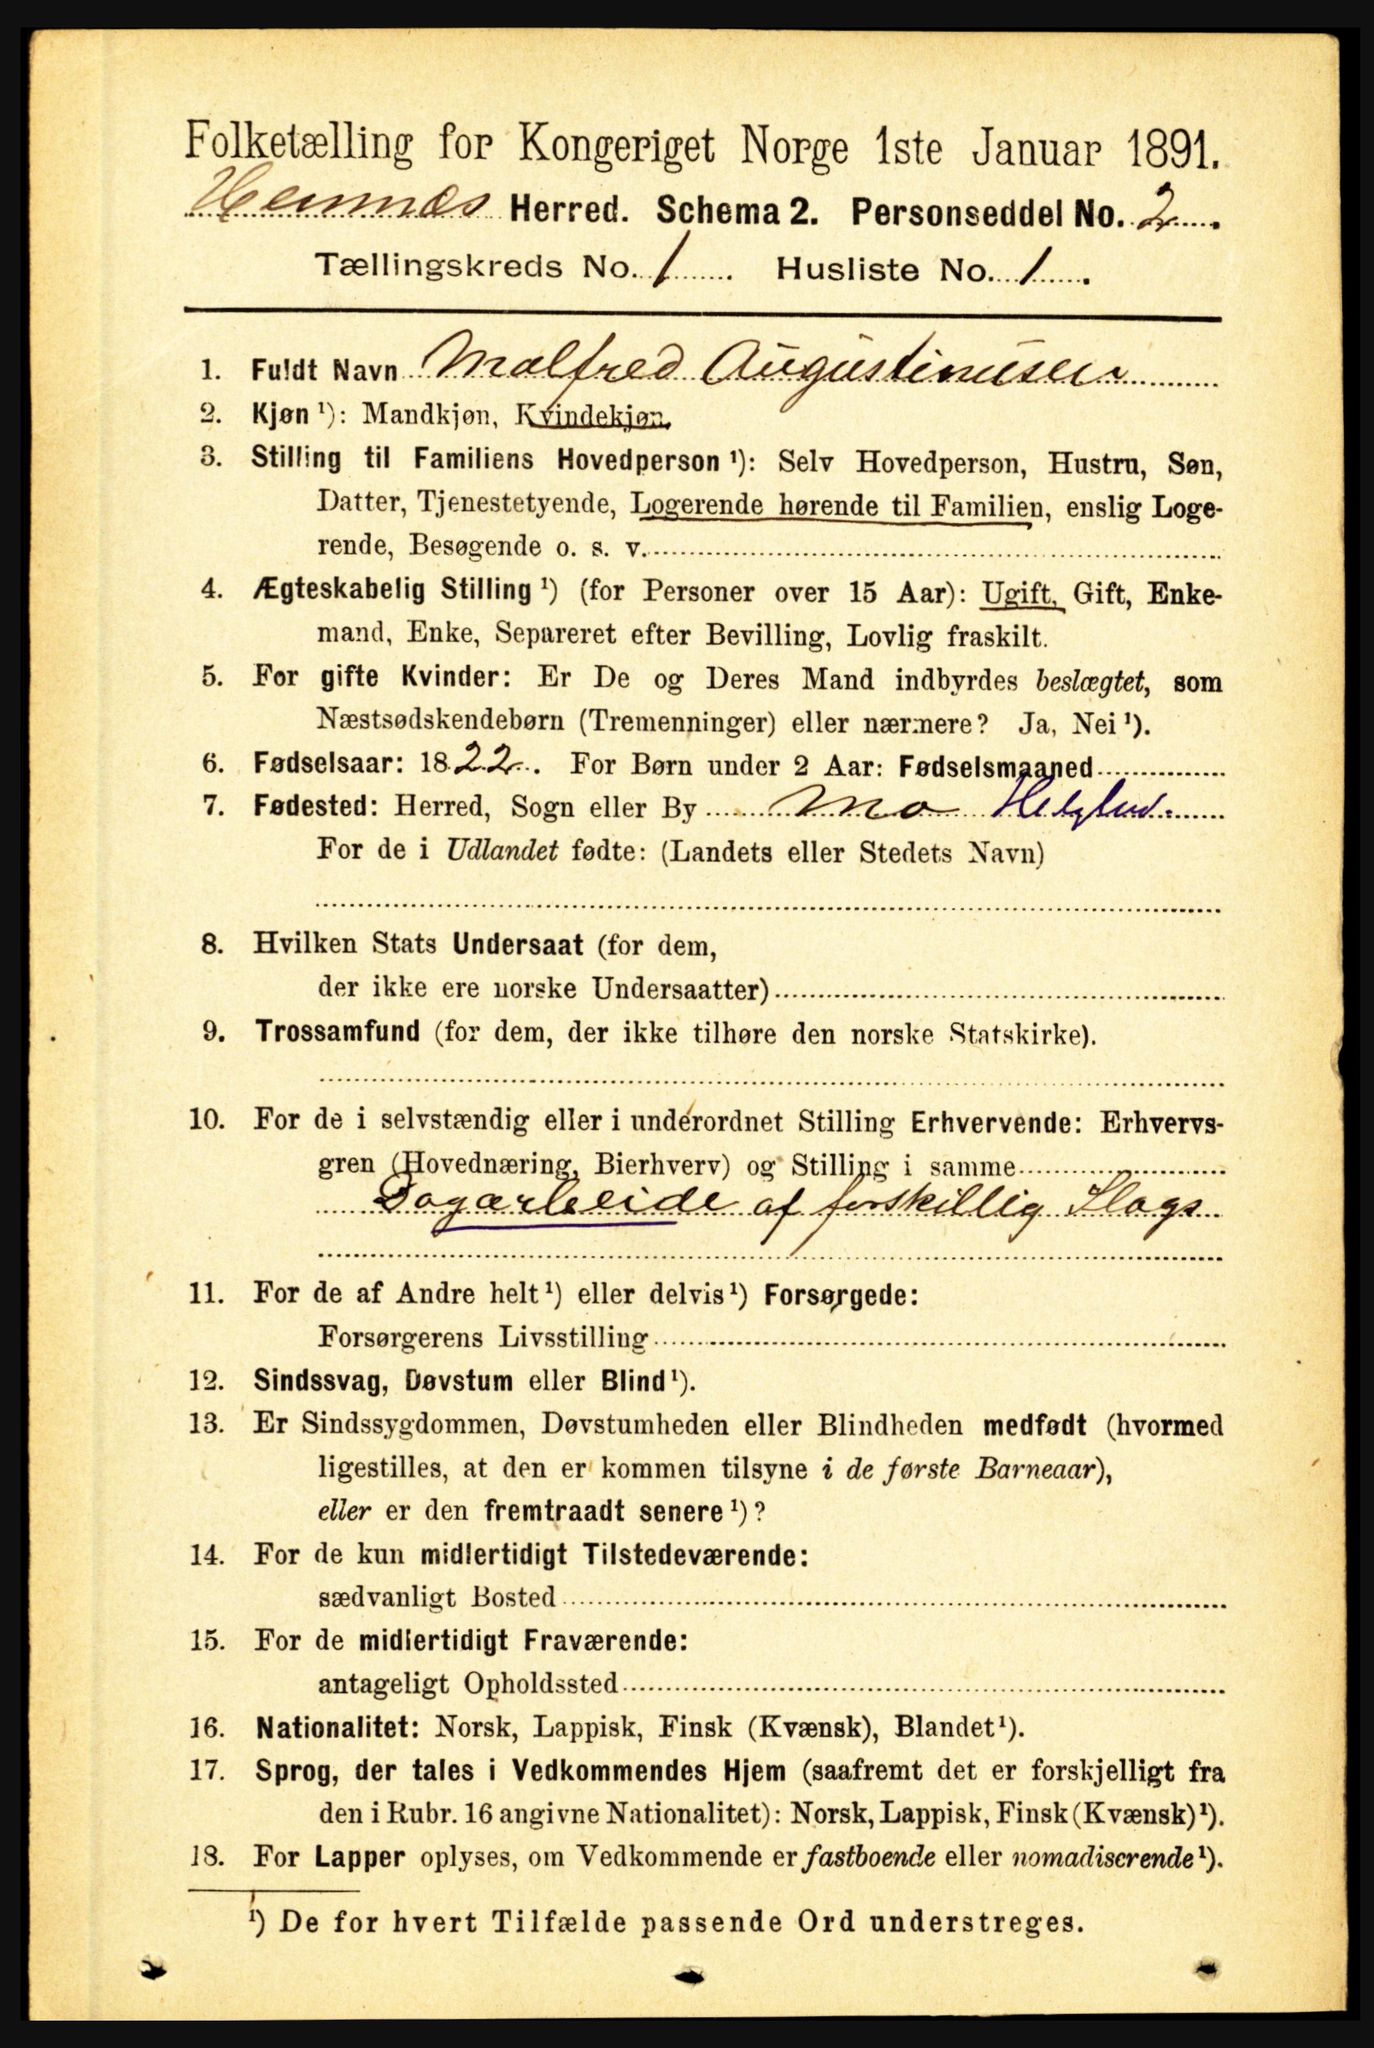 Folketælling for Kongeriget Norge 1ste Januar 1891.
Hemnæs Herred. Schema 2. Personseddel No. 2.
Tællingskreds No. 1. Husliste No. 1.
1. Fuldt Navn Malfred Augustinusen
2. Kjøn ¹): Mandkjøn, Kvindekjøn.
3. Stilling til Familiens Hovedperson ¹): Selv Hovedperson, Hustru, Søn,
Datter, Tjenestetyende, Logerende hørende til Familien, enslig Loge-
rende, Besøgende o. s. v.
4. Ægteskabelig Stilling ¹) (for Personer over 15 Aar): Ugift, Gift, Enke-
mand, Enke, Separeret efter Bevilling, Lovlig fraskilt.
5. For gifte Kvinder: Er De og Deres Mand indbyrdes beslægtet, som
Næstsødskendebørn (Tremenninger) eller nærmere? Ja, Nei ¹).
6. Fødselsaar: 1822. For Børn under 2 Aar: Fødselsmaaned
7. Fødested: Herred, Sogn eller By Mo Helglnd.
For de i Udlandet fødte: (Landets eller Stedets Navn)
8. Hvilken Stats Undersaat (for dem,
der ikke ere norske Undersaatter)
9. Trossamfund (for dem, der ikke tilhøre den norske Statskirke).
10. For de i selvstændig eller i underordnet Stilling Erhvervende: Erhvervs-
gren (Hovednæring, Bierhverv) og Stilling i samme
Dagarbeide af forskillig Slags
11. For de af Andre helt ¹) eller delvis ¹) Forsørgede:
Forsørgerens Livsstilling
12. Sindssvag, Døvstum eller Blind ¹).
13. Er Sindssygdommen, Døvstumheden eller Blindheden medfødt (hvormed
ligestilles, at den er kommen tilsyne i de første Barneaar),
eller er den fremtraadt senere ¹)?
14. For de kun midlertidigt Tilstedeværende:
sædvanligt Bosted
15. For de midlertidigt Fraværende:
antageligt Opholdssted
16. Nationalitet: Norsk, Lappisk, Finsk (Kvænsk), Blandet ¹).
17. Sprog, der tales i Vedkommendes Hjem (saafremt det er forskjelligt fra
den i Rubr. 16 angivne Nationalitet): Norsk, Lappisk, Finsk (Kvænsk) ¹).
18. For Lapper oplyses, om Vedkommende er fastboende eller nomadiserende ¹).
¹) De for hvert Tilfælde passende Ord understreges.